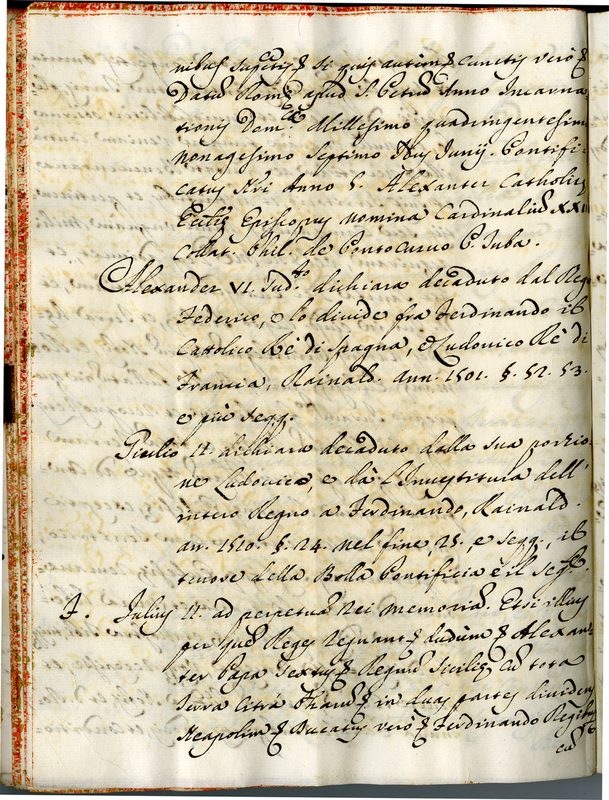 nibus supctis & Si quis autem & Cunctis verò &
Datum Rom& apud S. Petrum Anno Incarna
tionis Dom.cæ Millesimo quadringentesimo
nonagesimo septimo Idus Junij. Pontifi-
catus Nri Anno 5. Alexander Catholicæ
Ecclæ Episcopus nomina Cardinalium XXIII
Collat. Phil. de Pontocuruo C. Juba.
Alexander VI. Sud.to dichiara decaduto dal Regno
Federico, e lo divide fra Ferdinando il
Cattolico Rè di Spagna, e Ludovico Rè di
Francia, Rainald. ann. 1501. §. 52. 53.
e più segg.
Giulio II. dichiara decaduto dalla sua porzio
ne Ludovico, e dà l'Investitura dell'
intero Regno a Ferdinando, Rainald.
an. 1510. §. 24. nel fine, 25, e segg., il
tenore della Bolla Pontificia è il seg.te
J. Julius II. ad perpetuam rei memoriam. Etsi illius
per quem Reges regnant & dudum & Alexan-
ter Papa Sextus & Regnum Siciliæ cum tota
terra citra Pharum & in duas partes dividens
Neapolim & Ducatus verò & Ferdinando Regi
cum